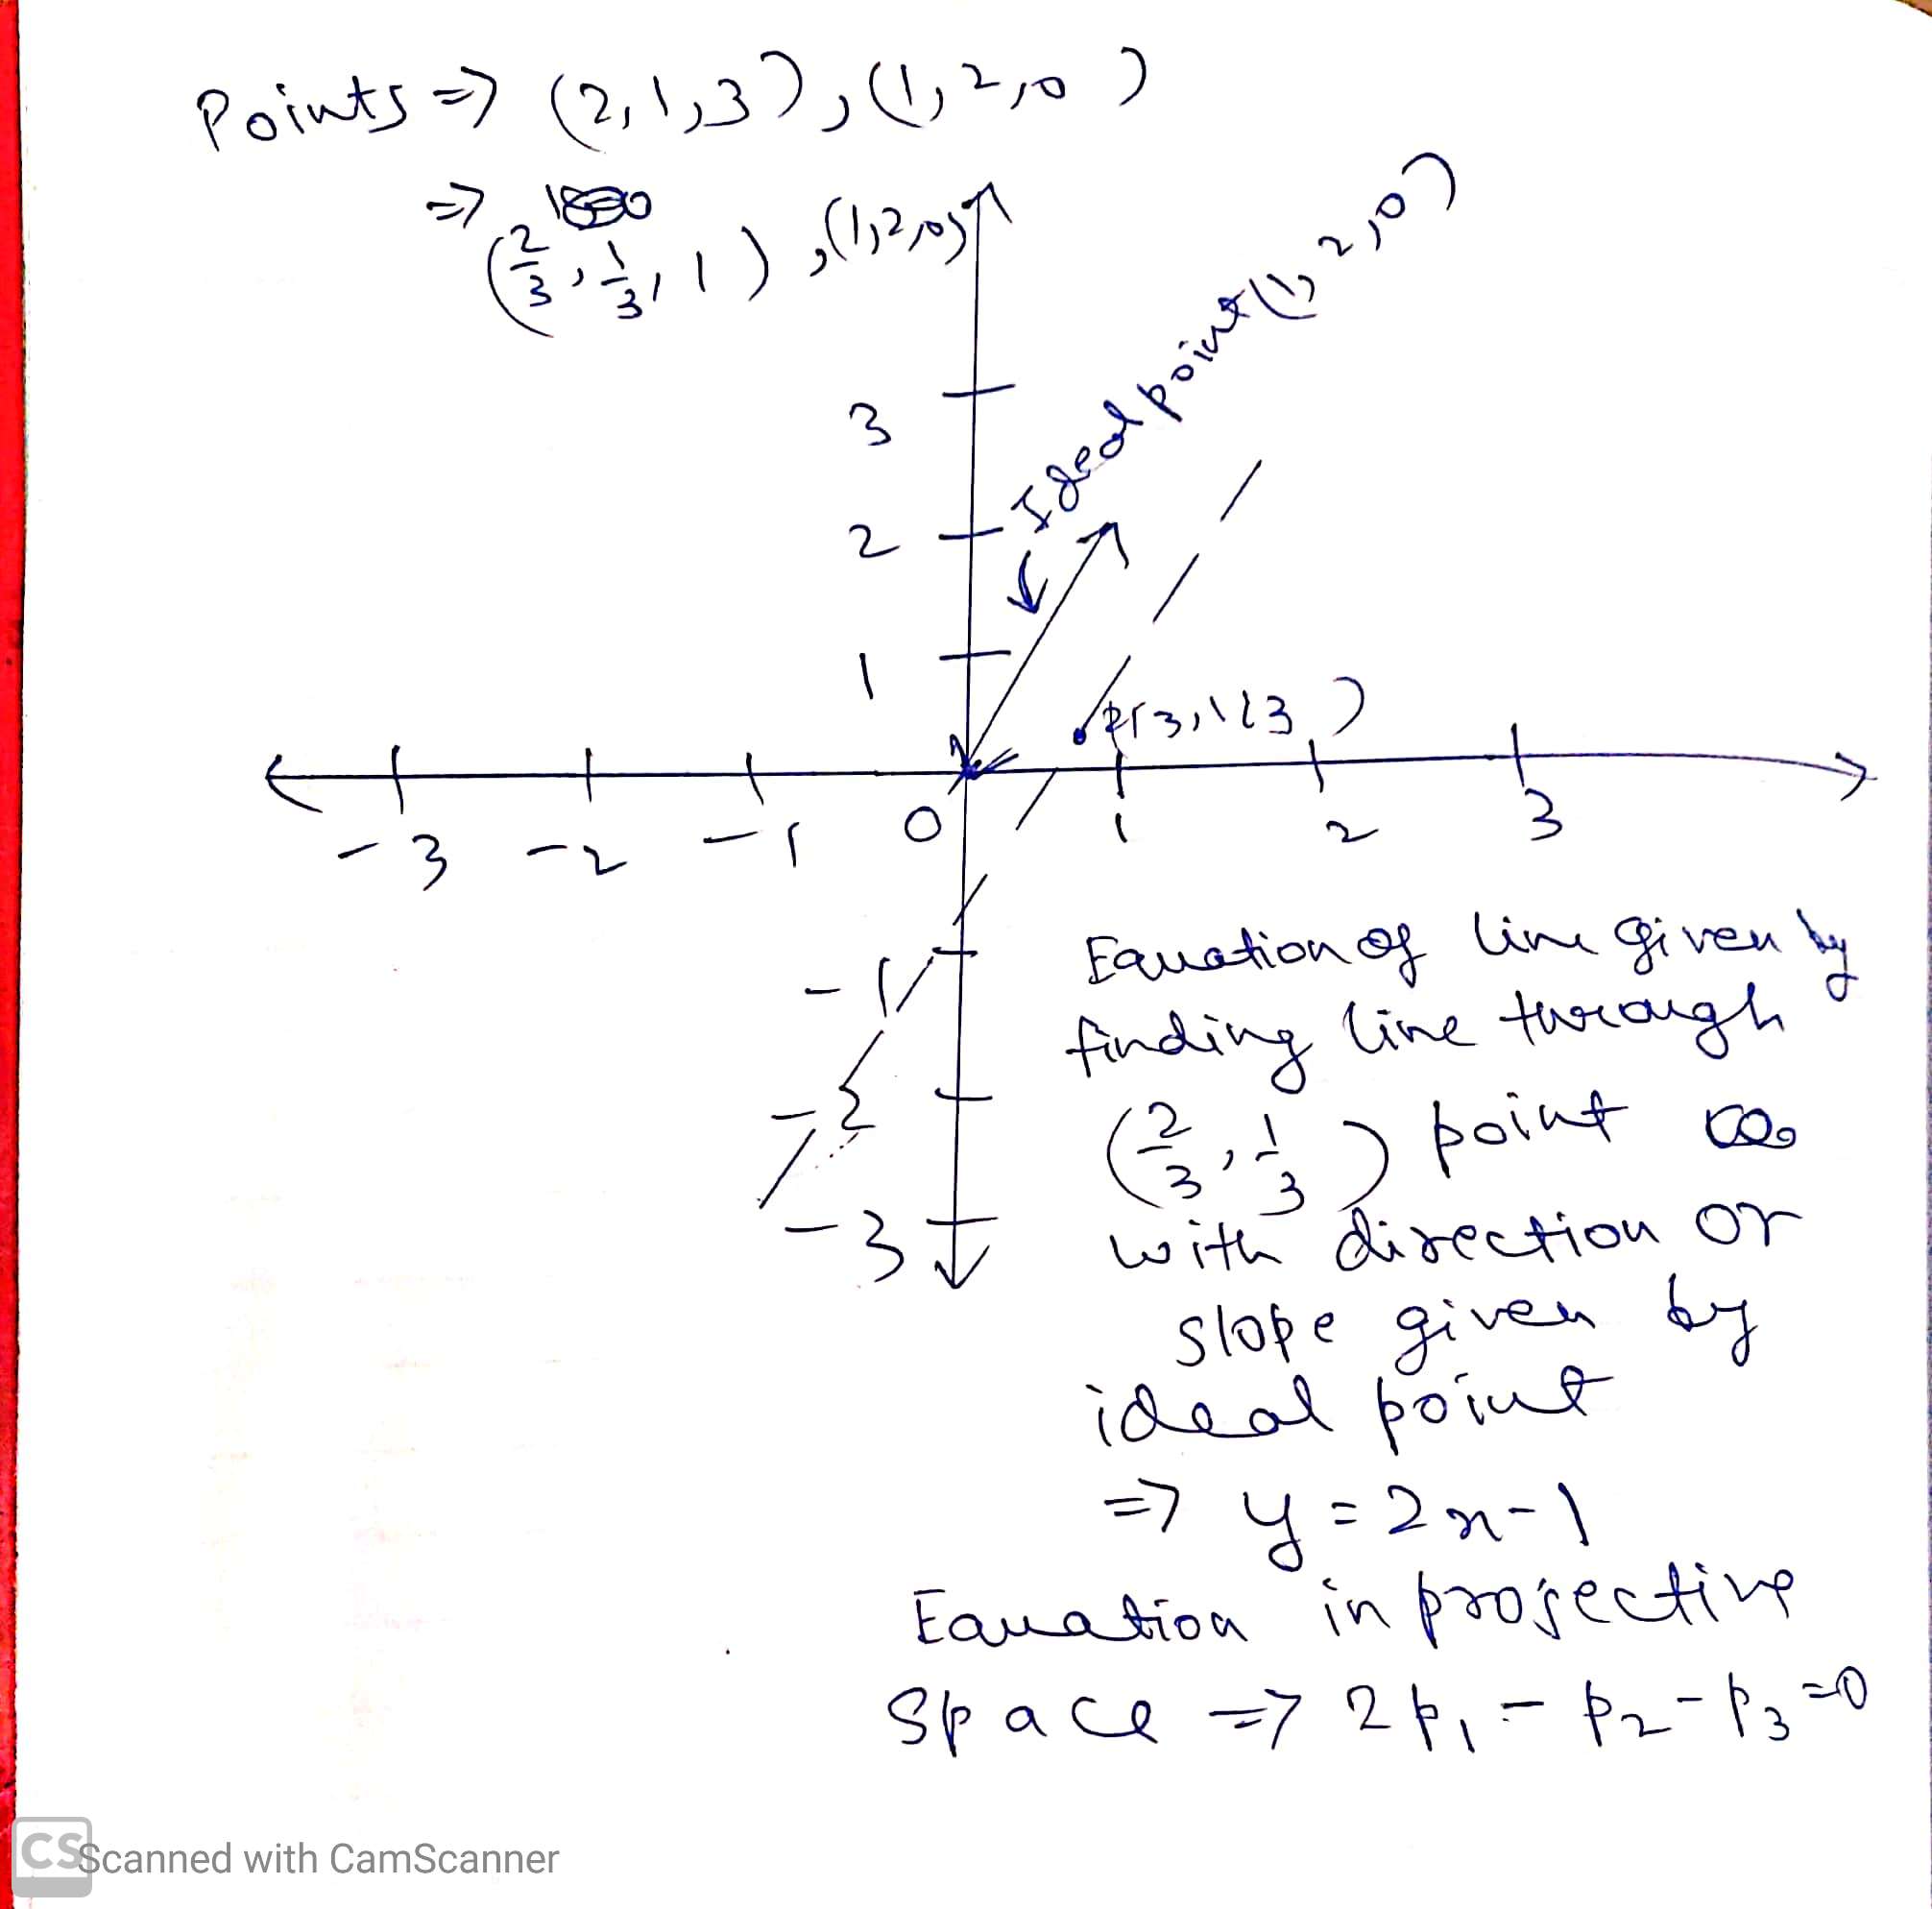 Points => (2,1,3), (1,2,0)
=> (2/3, 1/3, 1), (1,2,0)
Ideal point (1,2,0)
3
2
1
(2/3,1/3)
-3 -2 -1 0 1 2 3
-1
-2
-3
Equation of line given by
finding line through
(2/3, 1/3) point
with direction or
slope given by
ideal point
=> y = 2x-1
Equation in projective
space => 2p₁ - p₂ - p₃ = 0
CS Scanned with CamScanner